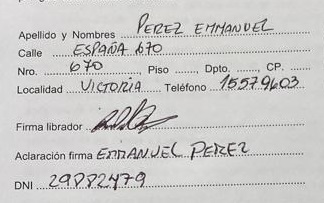 Apellido y Nombres PEREZ EMMANUEL
Calle ESPAÑA 670
Nro. 670 Piso ...... Dpto. ...... CP. ......
Localidad VICTORIA Teléfono 15579603
Firma librador
Aclaración firma EMMANUEL PEREZ
DNI 29882479